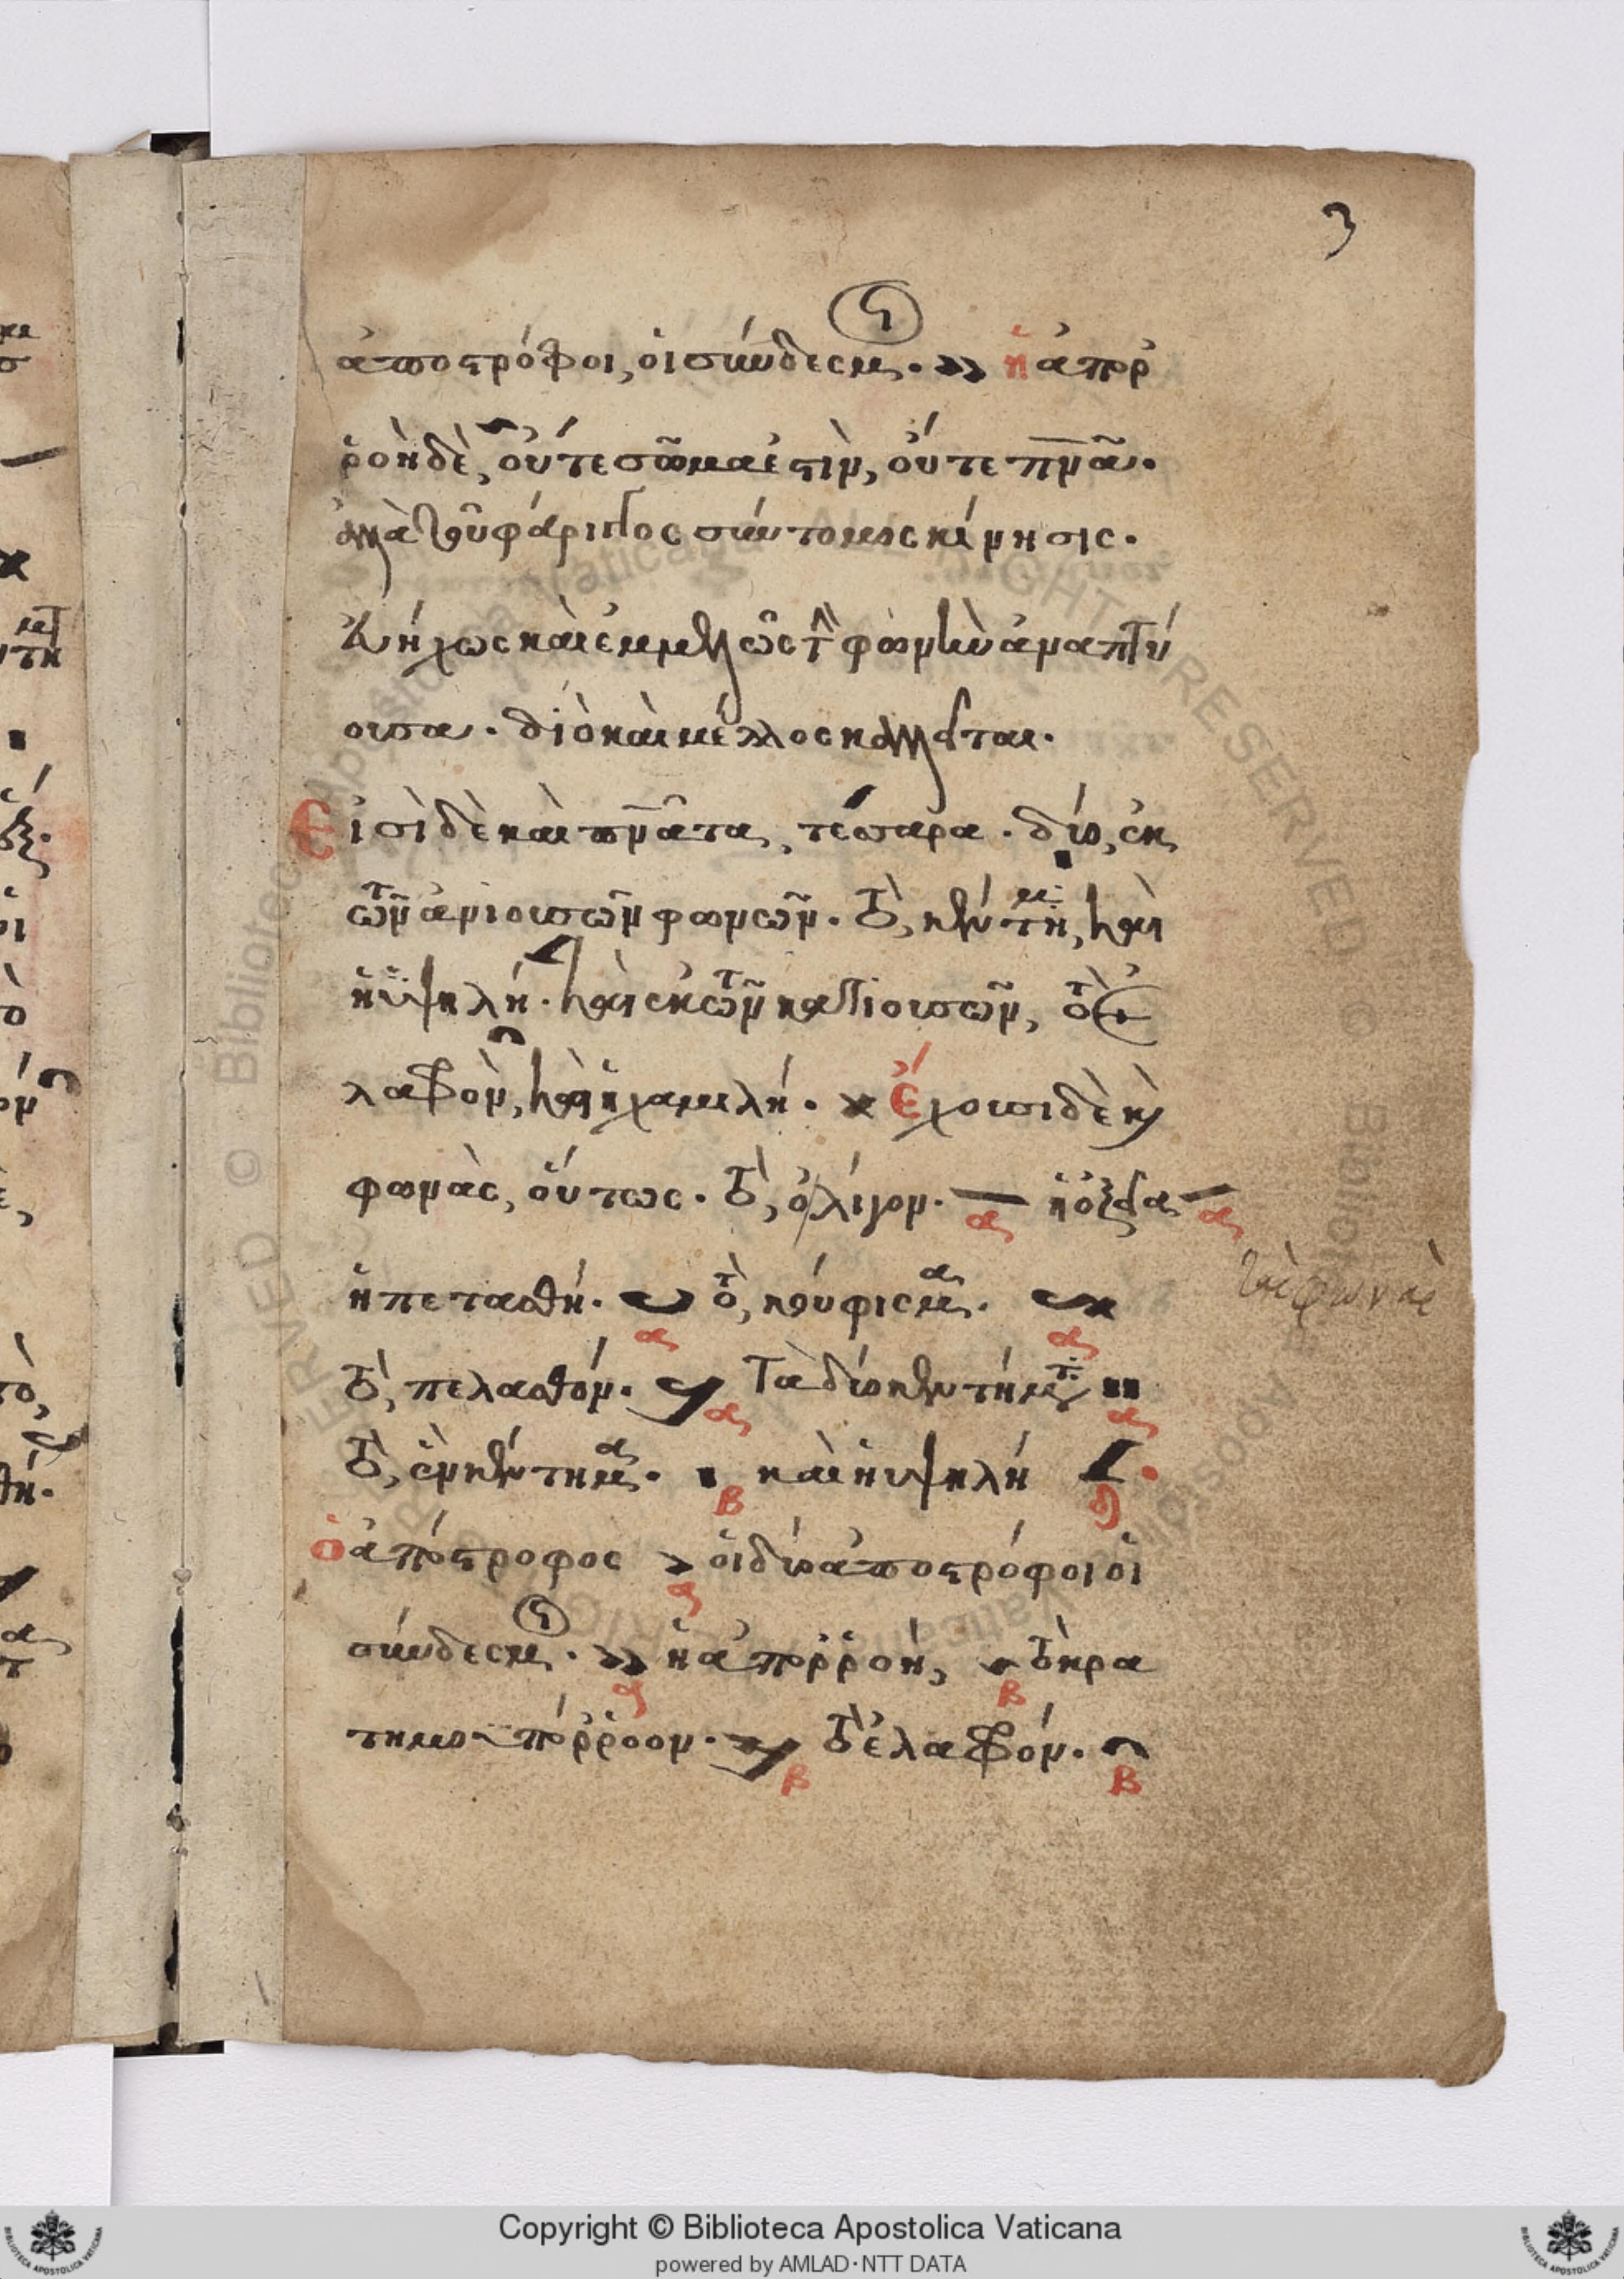 3
ἀποστρόφοι, οἱ σύνδεσμοι. ἡ ἀπορ
ῥοὴ δὲ, οὔτε σῶμα ἐστὶν, οὔτε πνᾶ.
ἀλλὰ τοῦ φάρυγγος σύντομος κίνησις.
εὐήχως καὶ ἐμμελῶς τὴν φωνὴν ἀναπτύ
ουσα. διὸ καὶ μέλος καλεῖται.
Εἰσὶ δὲ καὶ πνᾶτα, τέσσαρα. δύο, ἐκ
τῶν ἀνιουσῶν φωνῶν. τὸ, κέντημα, καὶ
ἡ ὑψηλή. καὶ ἐκ τῶν κατιουσῶν, τὸ ἐ
λαφρὸν, καὶ ἡ χαμιλή. Ἔχουσι δὲ καὶ
φωνὰς, οὕτως. τὸ, ὀλίγον. α ἡ ὀξεῖα α
τὰς φωνὰς
ἡ πετασθή. α τὸ, κούφισμα. α
τὸ, πελασθόν. α Τὰ δύο κεντήματα α
τὸ, ἐν κέντημα. β καὶ ἡ ὑψηλή δ
ὁ ἀπόστροφος α οἱ δύο ἀποστρόφοι οἱ
σύνδεσμοι. α ἡ ἀπορροὴ, β τὸ κρα
τημοϋπόρροον. β τὸ ἐλαφρόν. β
Copyright © Biblioteca Apostolica Vaticana
powered by AMLAD·NTT DATA